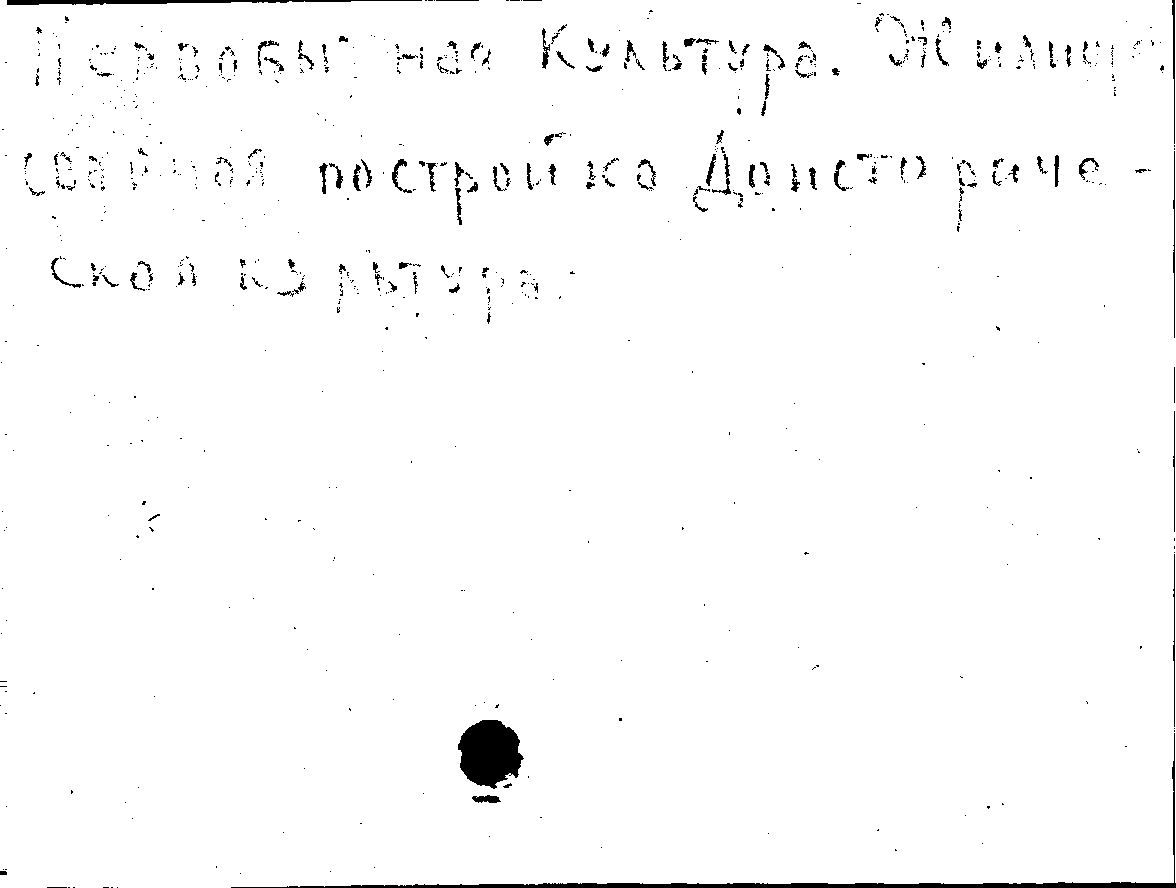 Первобытная Культура. Жилище.
свайная постройка Доисториче-
ская культура.